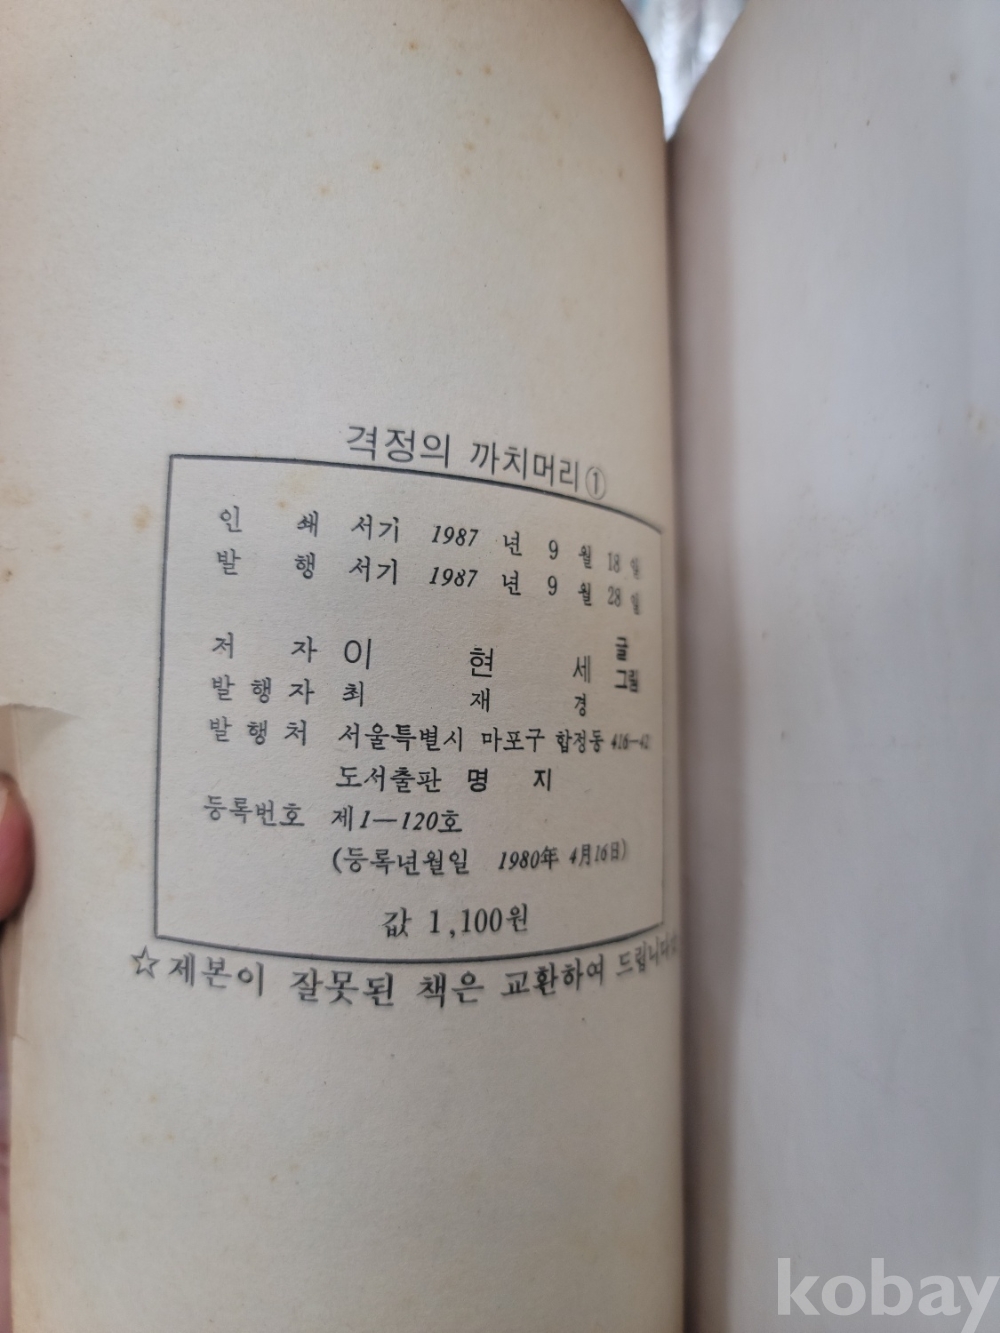 격정의 까치머리①
인 쇄 서기 1987 년 9 월 18 일
발 행 서기 1987 년 9 월 28 일
저 자 이 현 세 글 그림
발행자 최 재 경
발행처 서울특별시 마포구 합정동 416-42
도서출판 명 지
등록번호 제1-120호
(등록년월일 1980年 4月16日)
값 1,100원
☆제본이 잘못된 책은 교환하여 드립니다☆
kobay